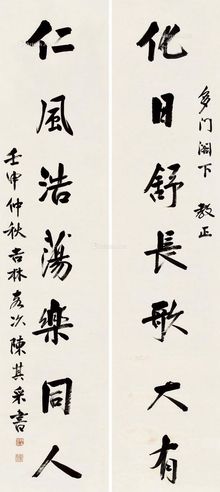 多门阁下 教正
化日舒長歌大有
仁風浩蕩樂同人
壬申仲秋吉林彦次陳其采書